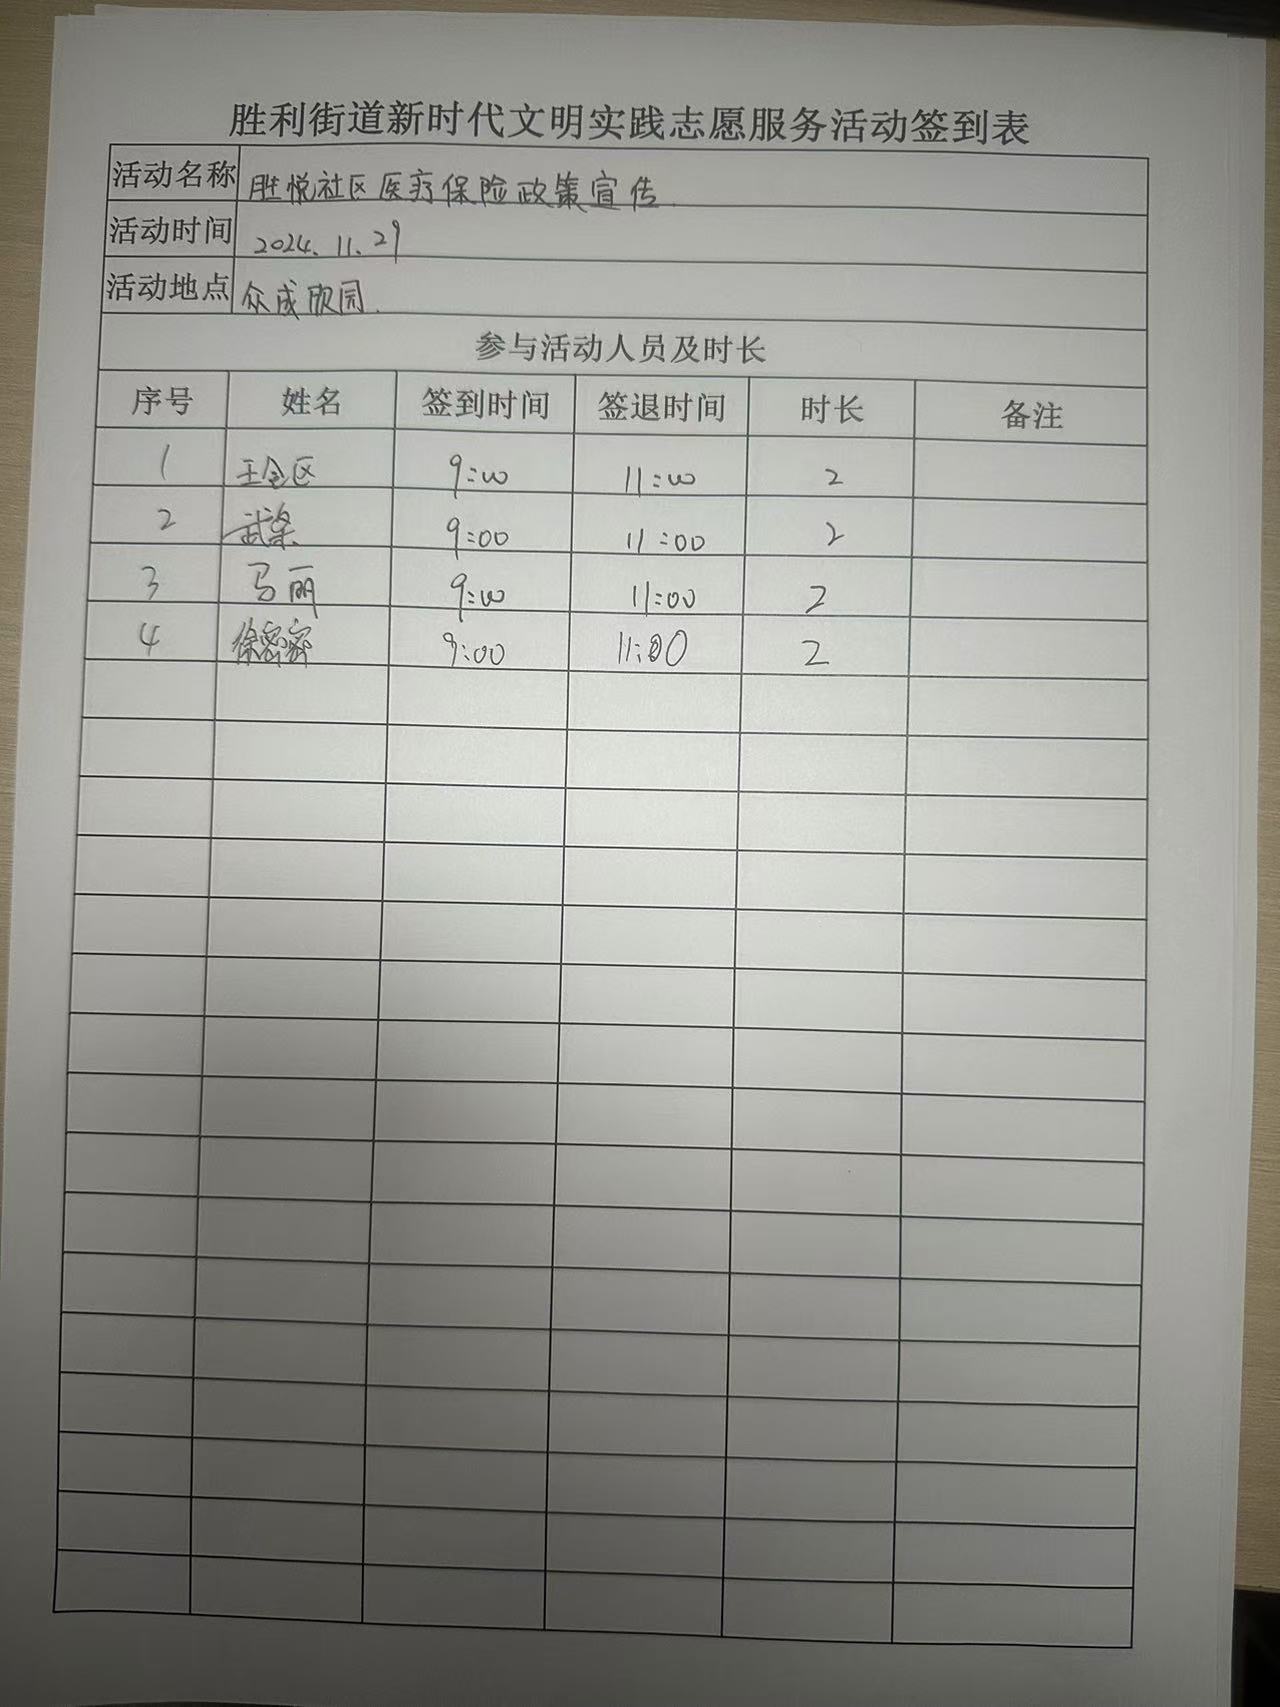 胜利街道新时代文明实践志愿服务活动签到表
活动名称 胜悦社区医疗保险政策宣传
活动时间 2024.11.29
活动地点 众成欣园
参与活动人员及时长
序号 姓名 签到时间 签退时间 时长 备注
1 王全区 9:00 11:00 2
2 武 9:00 11:00 2
3 马丽 9:00 11:00 2
4 徐密密 9:00 11:00 2